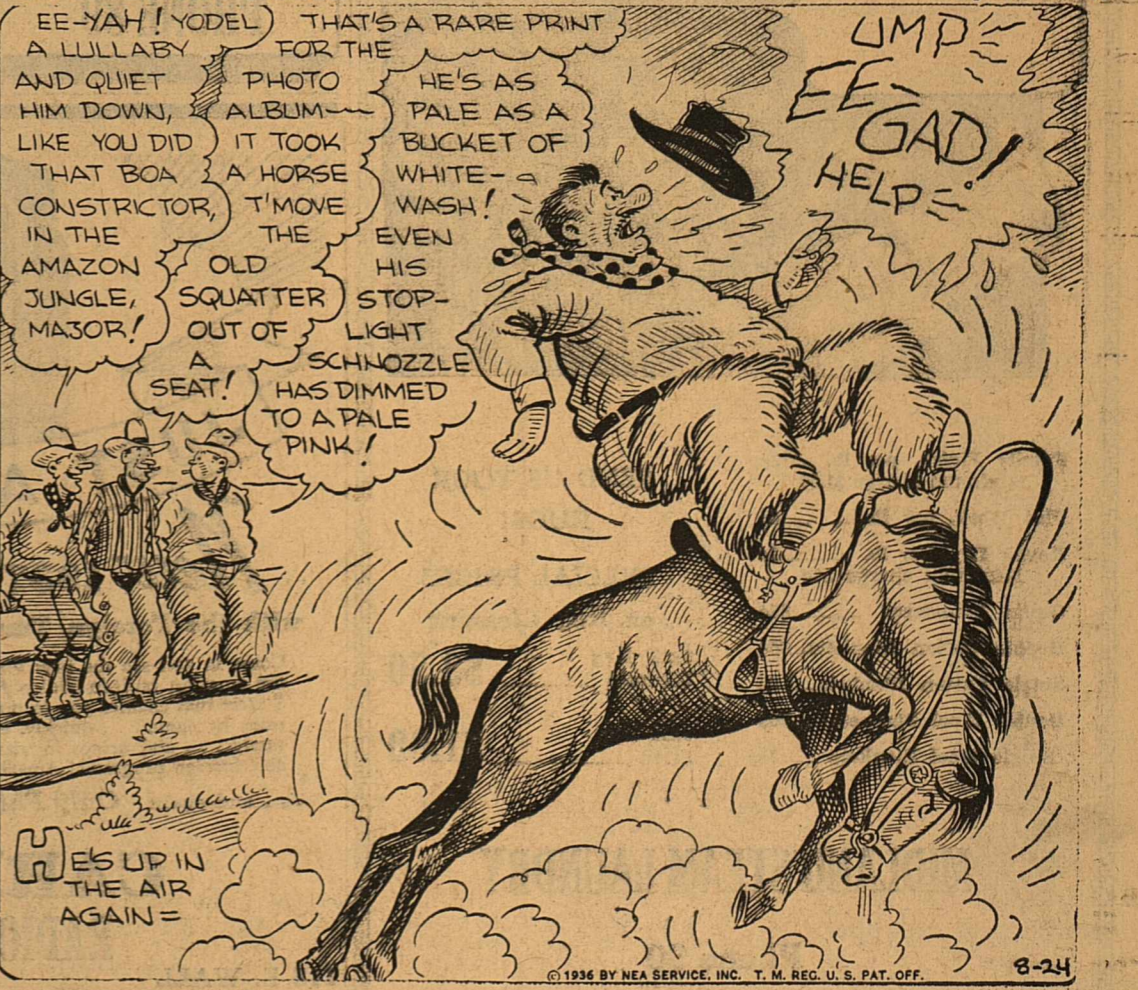 EE-YAH! YODEL
A LULLABY
AND QUIET
HIM DOWN,
LIKE YOU DID
THAT BOA
CONSTRICTOR,
IN THE
AMAZON
JUNGLE,
MAJOR!
THAT'S A RARE PRINT
FOR THE
PHOTO
ALBUM~~
IT TOOK
A HORSE
T'MOVE
THE
OLD
SQUATTER
OUT OF
A
SEAT!
HE'S AS
PALE AS A
BUCKET OF
WHITE-
WASH!
EVEN
HIS
STOP-
LIGHT
SCHNOZZLE
HAS DIMMED
TO A PALE
PINK!
UMP
EE-
GAD!
HELP
HE'S UP IN
THE AIR
AGAIN=
© 1936 BY NEA SERVICE, INC. T. M. REG. U. S. PAT. OFF.
8-24